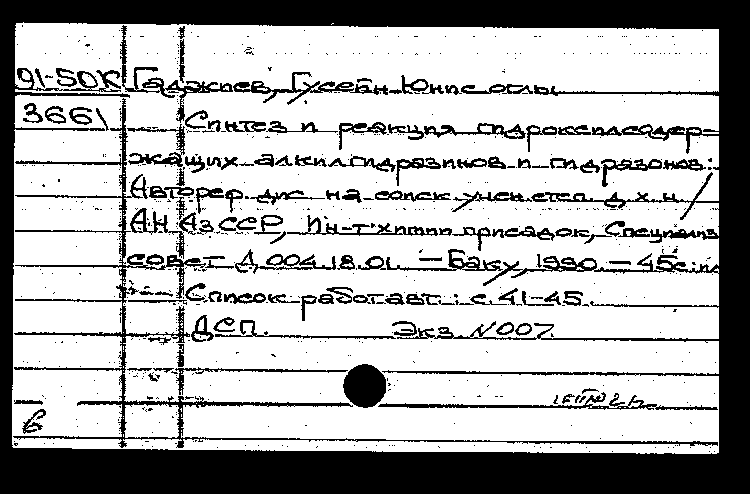 91-50К Гаджиев, Гусейн Юнис оглы
3661 Синтез и реакция гидроксилсодер-
жащих алкилгидразинов и гидразонов:
Автореф. дис. на соиск. учен. степ. д. х. н. /
АН АзССР, Ин-т химии присадок, Специализ.
совет Д.004.18.01. – Баку, 1990. – 45с: ил
– Список работ авт.: с. 41-45.
ДСП. Экз. N 007.